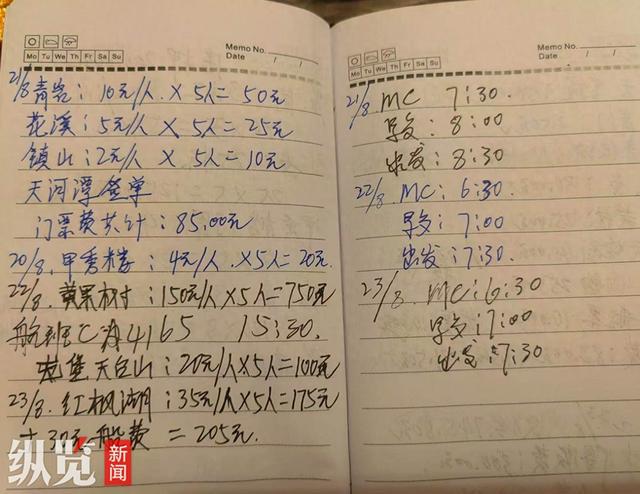 Memo No.
Mo Tu We Th Fr Sa Su
Date / /
21/8 青岩：10元/人 × 5人= 50元
花溪：5元/人 × 5人= 25元
镇山：2元/人 × 5人= 10元
天河潭签单
门票费共计：85.00元
20/8. 甲秀楼：4元/人 × 5人= 20元
22/8. 黄果树：150元/人×5人=750元
航班 4165 15:30.
堡天台山：20元/人×5人=100元
23/8. 红枫湖：35元/人×5人=175元
+ 30元船费 = 205元.
纵览
新闻
Memo No.
Mo Tu We Th Fr Sa Su
Date / /
21/8 MC 7:30.
早餐：8:00
出发：8:30
22/8. MC：6:30
早餐：7:00
出发：7:30.
23/8. MC：6:30
早餐：7:00
出发：7:30